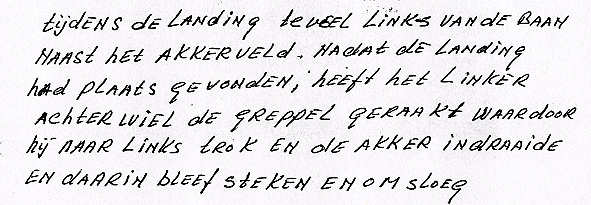 tijdENS dE LANdING tEVEEL LINKS VAN dE BAAN
NAAST hET AKKERVELD. NAdAT dE LANdING
hAd PLAATS GEVONdEN, hEEft hET LINKER
AchtER WIEL dE GREPPEL GERAAKT WAARdOOR
hij NAAR LINKS tROK EN dE AKKER INdRAAIdE
EN dAARIN bLEEf STEKEN EN OM SLOEG